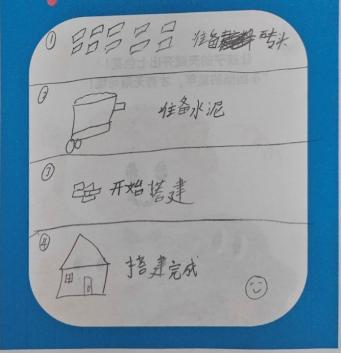 ① 准备砖头
② 准备水泥
③ 开始搭建
④ 搭建完成